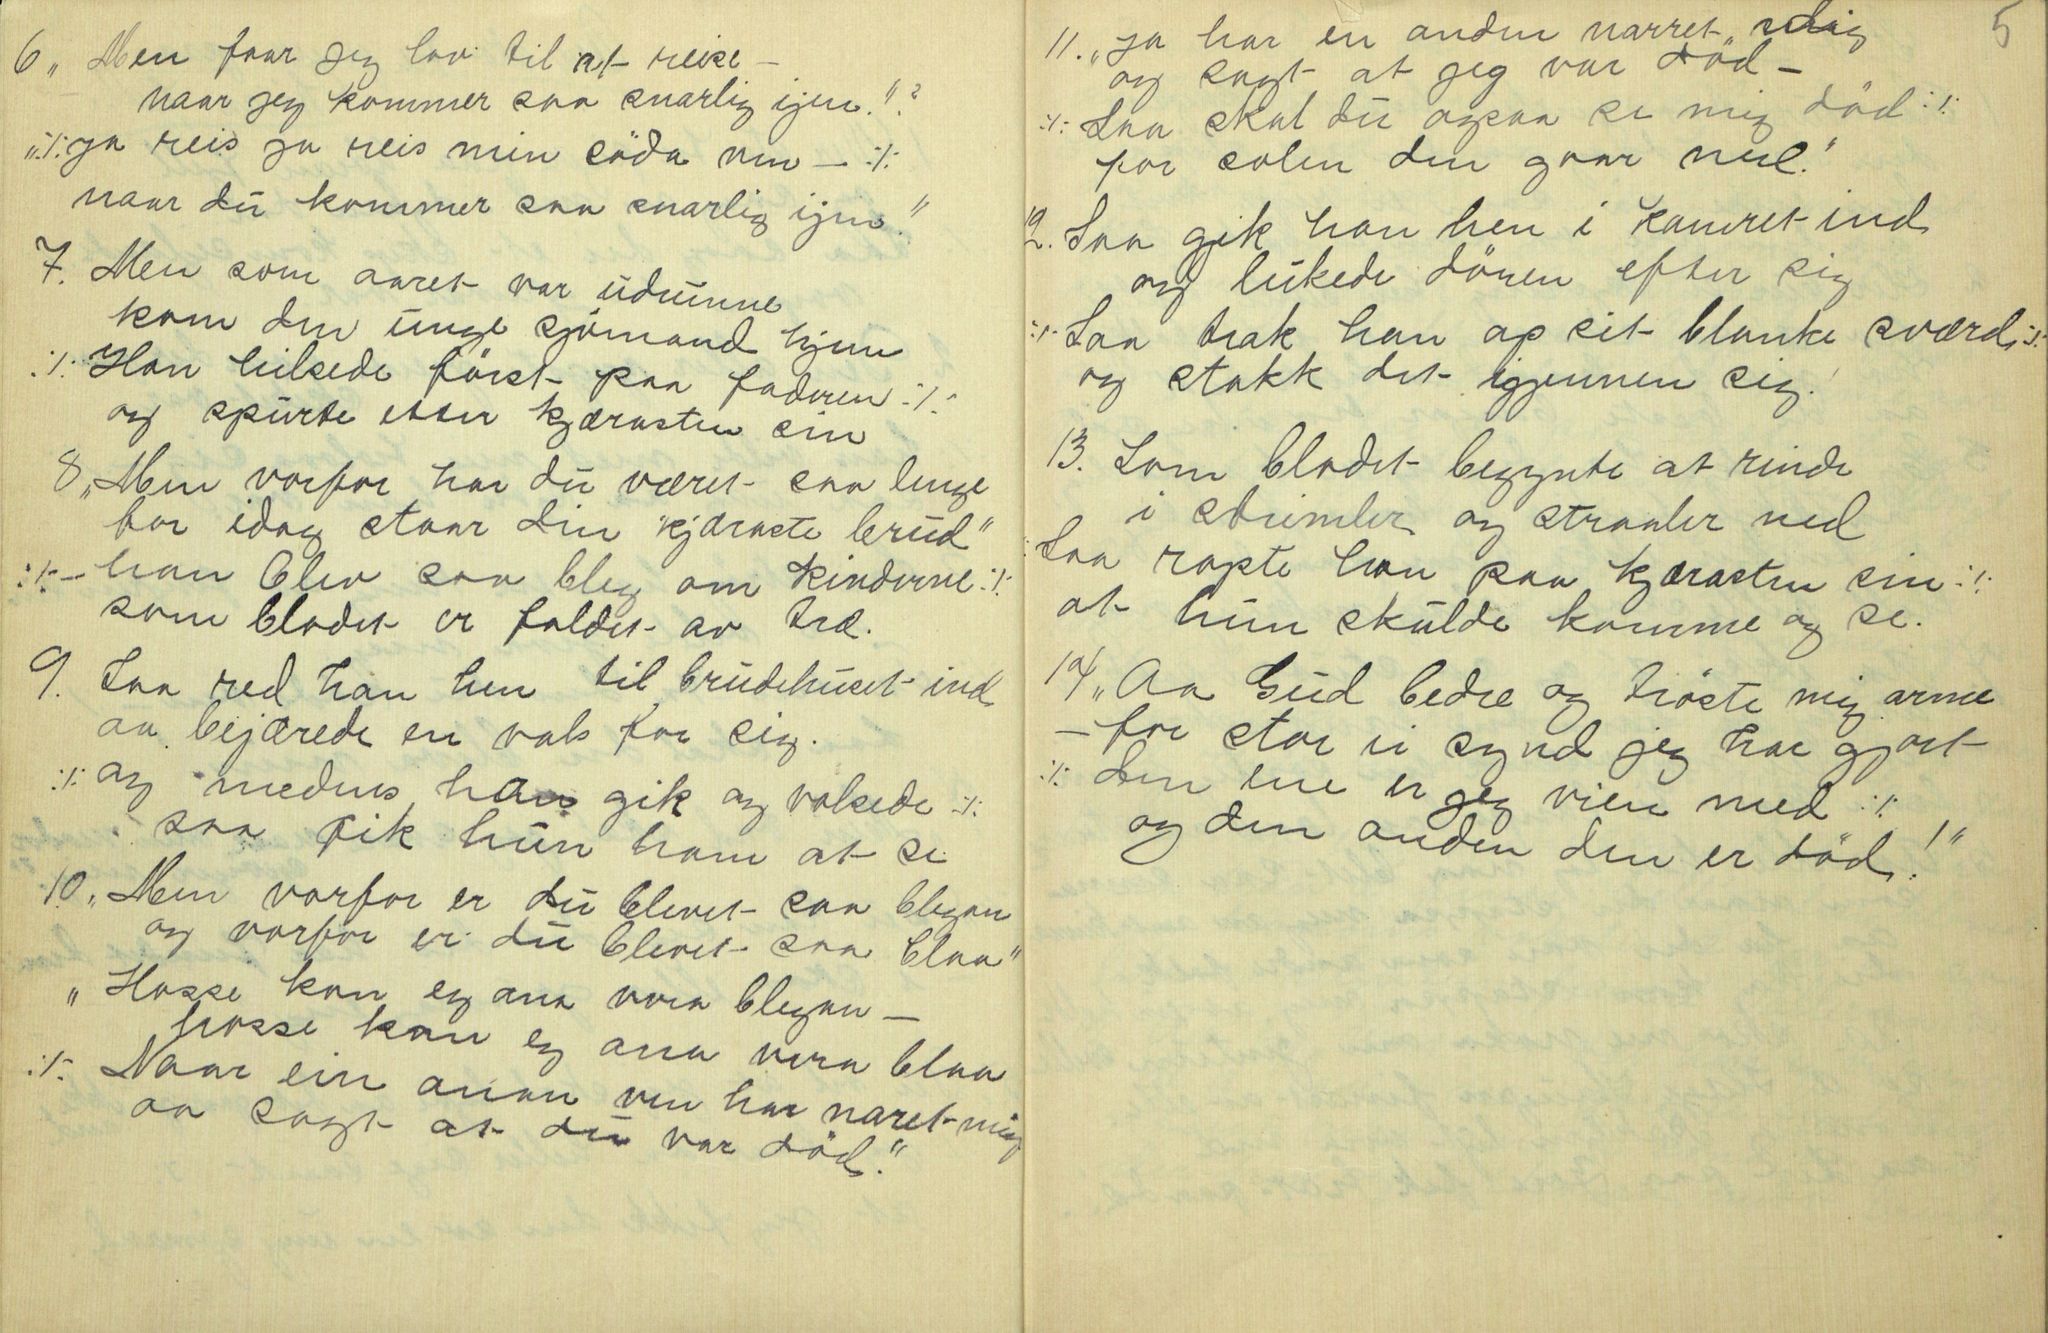 6 „ Men faar jeg lov til at reise –
naar jeg kommer saa snarlig ijen."?
„:/: ja reis ja reis min söda ven – :/:
naar dŭ kommer saa snarlig ijen."
7. Men som aaret var ŭdrŭnne
kom den ŭnge sjömand hjem
:/: Han hilsede först paa faderen :/:
og spŭrte etter kjærasten sin
8 „Men vorfor har dŭ været saa lenge
for idag staar din kjæraste brŭd"
:/: – han blev saa bleg om kinderne :/:
som bladet er faldet av træ.
9. Saa red han hen til brŭdehŭset ind
aa bejærede en vals for sig.
:/: og medens han gik og valsede :/:
saa fik hŭn ham at se
10. „Men vorfor er dŭ blevet saa blegan
og vorfor er dŭ blevet saa blaa"
„ Hosse kan eg ana vera blegan –
hosse kan eg ana vera blaa
:/: Naar ein anan ven har naret mig
aa sagt at dŭ var död."
5
11. „ja har en anden narret dig
og sagt at jeg var död –
:/: Saa skal dŭ ogsaa se mig död :/:
for solen den gaar ned."
12. Saa gik han hen i kamret ind
og lŭkede dören efter sig
:/: Saa trak han op sit blanke sværd :/:
og stakk det igjennem sig.
13. Som blodet begynte at rinde
i strimler og straaler ned
: Saa ropte han paa kjærasten sin :/:
at hŭn skŭlde komme og se.
14 „Aa Gŭd bedre og tröste mig arme
– for stor ei synd jeg har gjort
:/: den ene er jeg vien med :/:
og den anden den er död!"